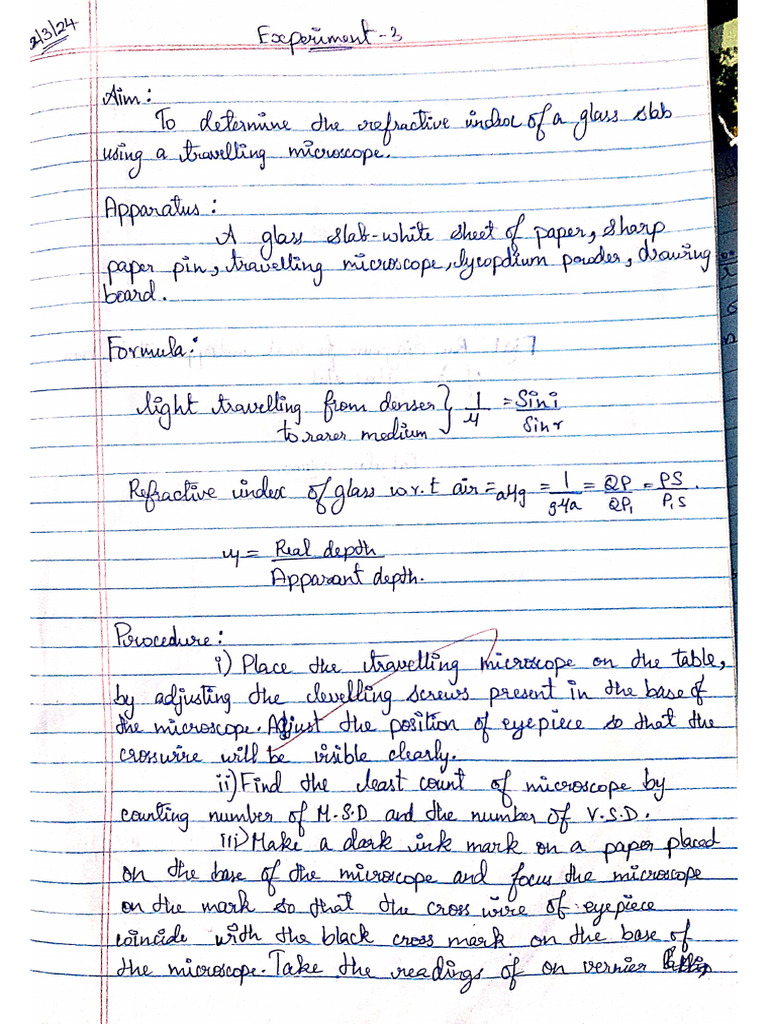 2/3/24
Experiment - 3
Aim:
To determine the refractive index of a glass slab
using a travelling microscope.
Apparatus:
A glass slab - white sheet of paper, sharp
paper pin, travelling microscope, lycopdium powder, drawing
board.
Formula:
light travelling from denser to rarer medium } 1/μ = Sin i / Sin r
Refractive index of glass w.r.t air = aμg = 1/gμa = QP/QP₁ = PS/P₁S.
μ = Real depth / Apparant depth.
Procedure:
i) Place the travelling microscope on the table,
by adjusting the levelling screws present in the base of
the microscope. Adjust the position of eyepiece so that the
crosswire will be visible clearly.
ii) Find the least count of microscope by
counting number of M.S.D and the number of V.S.D.
iii) Make a dark ink mark on a paper placed
on the base of the microscope and focus the microscope
on the mark so that the cross wire of eyepiece
coincide with the black cross mark on the base of
the microscope. Take the readings of on vernier